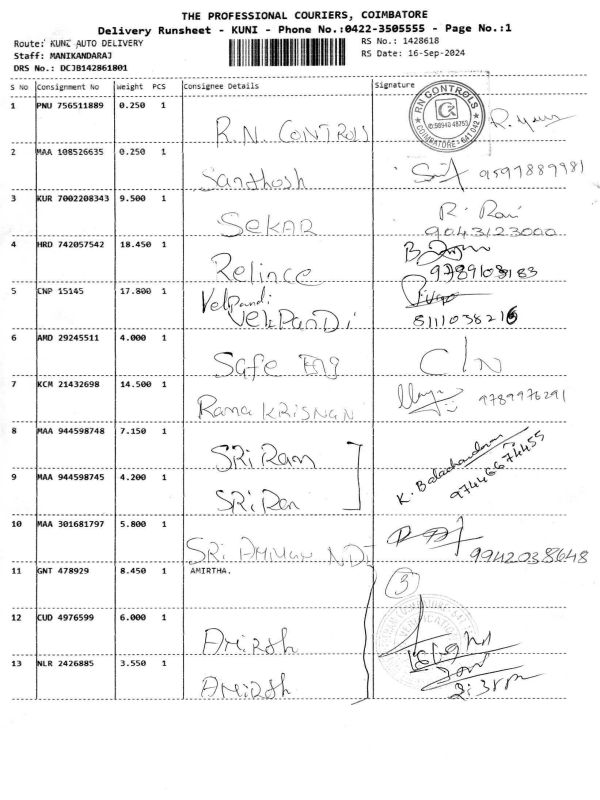 THE PROFESSIONAL COURIERS, COIMBATORE
Delivery Runsheet - KUNI - Phone No.:0422-3505555 - Page No.:1
Route: KUNI AUTO DELIVERY
RS No.: 1428618
Staff: MANIKANDARAJ
RS Date: 16-Sep-2024
DRS No.: DCJB142861801
S No Consignment No Weight PCS Consignee Details Signature
1 PNU 756511889 0.250 1
R.N. CONTROLS
RN CONTROLS
COIMBATORE - 641 042
2 MAA 108526635 0.250 1
Santhosh 9597889981
3 KUR 7002208343 9.500 1
SEKAR R. Ravi
9043123000
4 HRD 742057542 18.450 1
Relince 9789103183
5 CNP 15145 17.800 1
VelPandi
VelPanDi 8111038216
6 AMD 29245511 4.000 1
Safe Eng C/N
7 KCM 21432698 14.500 1
Rama KRISNAN 9789976291
8 MAA 944598748 7.150 1
SRi Ram
K. Balachandran
9744667445​5
9 MAA 944598745 4.200 1
SRi Ram
10 MAA 301681797 5.800 1
SRi AMMAN NDT 9942038648
11 GNT 478929 8.450 1 AMIRTHA.
3
12 CUD 4976599 6.000 1
AMiRth
16/9/24
13 NLR 2426885 3.550 1
AMiRth
2:30pm